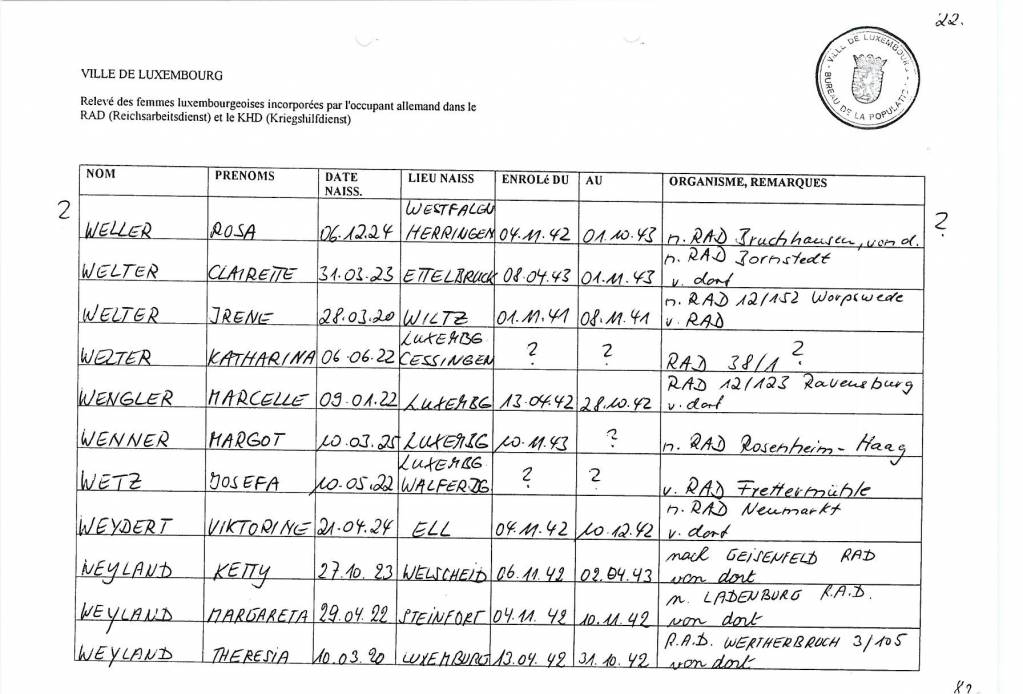 22.
VILLE DE LUXEMBOURG
BUREAU DE LA POPULATION
VILLE DE LUXEMBOURG
Relevé des femmes luxembourgeoises incorporées par l'occupant allemand dans le
RAD (Reichsarbeitsdienst) et le KHD (Kriegshilfdienst)
NOM PRENOMS DATE NAISS. LIEU NAISS ENROLé DU AU ORGANISME, REMARQUES
? WELLER ROSA 06.12.24 WESTFALEN HERRINGEN 04.11.42 01.10.43 n. RAD Bruchhausen, von d. ?
WELTER CLAIRETTE 31.03.23 ETTELBRUCK 08.04.43 01.11.43 n. RAD Bornstedt v. dort
WELTER IRENE 28.03.20 WILTZ 01.11.41 08.11.41 n. RAD 12/152 Worpswede v. RAD
WELTER KATHARINA 06.06.22 LUXEMBG CESSINGEN ? ? RAD 38/1 ?
WENGLER MARCELLE 09.01.22 LUXEMBG 13.04.42 28.10.42 RAD 12/123 Ravensburg v. dort
WENNER MARGOT 10.03.25 LUXEMBG 10.11.43 ? n. RAD Rosenheim-Haag
WETZ JOSEFA 10.05.22 LUXEMBG WALFERDG ? ? v. RAD Frettermühle
WEYDERT VIKTORINE 21.04.24 ELL 04.11.42 10.12.42 n. RAD Neumarkt v. dort
WEYLAND KETTY 27.10.23 WELSCHEID 06.11.42 02.04.43 nach GEISENFELD RAD von dort
WEYLAND MARGARETA 29.04.22 STEINFORT 04.11.42 10.11.42 n. LADENBURG R.A.D. von dort
WEYLAND THERESIA 10.03.20 LUXEMBURG 13.04.42 31.10.42 R.A.D. WERTHERBRUCH 3/105 von dort